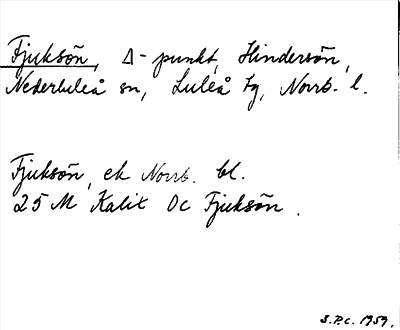 Fjuksön, Δ-punkt, Hindersön,
Nederluleå sn, Luleå tg, Norrb. l.
Fjuksön, ek Norrb. bl.
25 M Kalix Dc Fjuksön.
S.P.C. 1959.